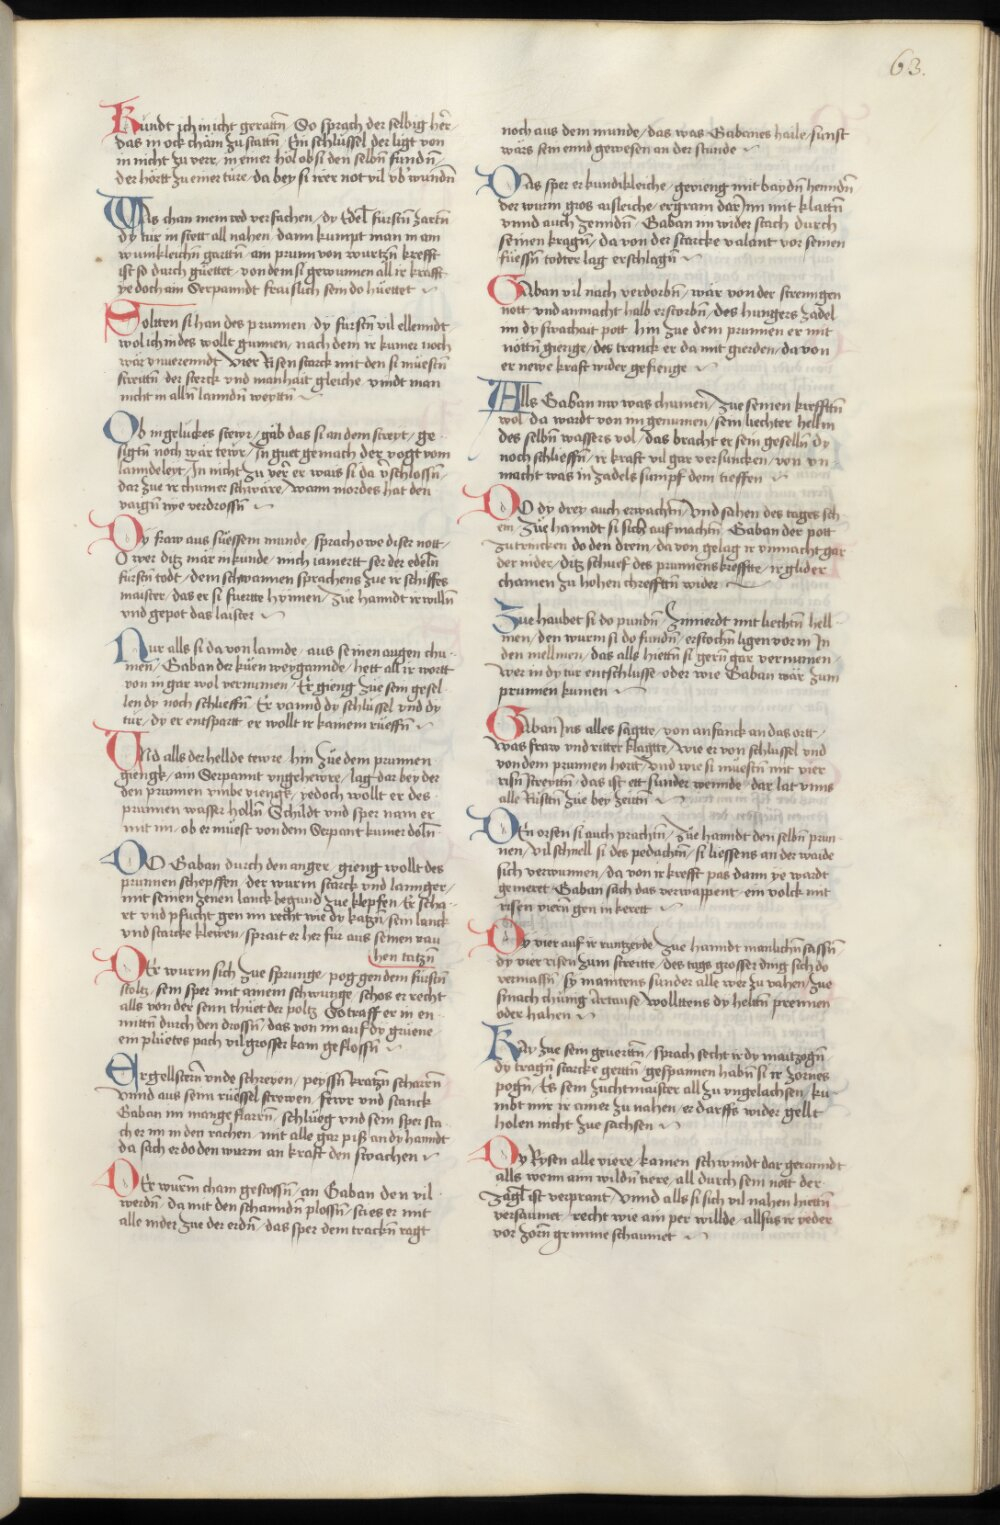 63.
Kundt ich in icht geratñ / So sprach der selbig her /
das in ock cham zu stattñ / Ein schlussel der ligt von
in nicht zu verr / in einer hol ob si den selbñ fundñ /
der hortt zu einer ture / da bey si irer not vil vb'wundñ
Was chan mein red versachen / dy Edel furstñ zartñ
dy tur in stett all nahen / dann kumpt man in am
wunklichñ garttñ / am prunn von wurtzñ krefft
ist so durch guettet / von dem si gewunnen all ir krafft
yedoch am Serpanndt fraislich sein do huettet
Soltten si han des prunnen / dy furstñ vil ellenndt
wol ich in des wollt gunnen / nach dem ir kumer noch
war vnuerenndt / Vier Risen starck mit den si muestñ
streittñ / der sterck vnd manhait gleiche / vindt man
nicht in allñ lanndñ weyttñ
Ob in geluckes stewr / gab das si an dem streyt / ge
sigtñ noch war tewr / In guet gemach der vogt vom
lanndeleyt / In nicht zu verr er wais si da v'schlossñ /
dar zue ir chumer schware / wann mordes hat den
vaignñ nye verdrossñ
Dy fraw aus suessem munde / sprach owe diser nott /
O wer ditz mar in kunde / mich iamertt ser der edelñ
furstñ todt / dem schwannen sprachens zue ir schiffes
maister / das er si fuertte hynnen / zue hanndt ir willñ
vnd gepot das laister
Nur alls si da von lannde / aus seinen augen chu
men / Gaban der kuen weygannde / hett all ir wortt
von in gar wol vernumen / Er gieng zue sein gesel
len dy noch schlieffñ / Er vannd dy schlussel vnd dy
tur / dy er entspartt er wollt ir kainem rueffñ
Vnd alls der hellde tewre / hin zue dem prunnen
giengk / am Serpannt vngehewre / lag dar bey der
den prunnen vmbe viengk / yedoch wollt er des
prunnen wasser hollñ / Schildt vnd sper nam er
mit im / ob er muest von dem Serpant kumer dolñ
Do Gaban durch den anger / gieng wollt des
prunnen schepffen / der wurm starck vnd lannger /
mit seinen zenen lanck begund zue klepfen / Er scha
rt vnd pfucht gen im recht wie dy katzñ / sein lanck
vnd starcke klewen / spraitt er her fur aus seinen rau
hen tatzñ
Der wurm sich zue sprunge / pog gen dem furstñ
stoltz / sein sper mit ainem schwunge / schos er recht
alls von der senn thuet der poltz / So traff er in en
mittñ durch den drossñ / das von im auf dy gruene
ein pluetes pach vil grosser kam geflossñ
Er gellstern vnde schreyen / peyssñ kratzñ scharrñ
vnnd aus seim ruessel strewen / fewr vnd stanck
Gaban im mange flarrñ / schlueg vnd sein sper sta
ch er im in den rachen / mit alle gar piß an dy hanndt
da sach er do den wurm an kraft den swachen
Der wurm cham gestossñ / an Gaban den vil
werdñ / da mit den schanndñ plossñ / sties er mit
alle nider zue der erdñ / das sper dem tracknñ ragt
noch aus dem munde / das was Gabanes haile / sunst
wärs sein ennd gewesen an der stunde
Das sper er kundikleiche / gevieng mit baydñ henndñ
der wurm gros aisleiche / ergram dar Inn mit klattñ
vnnd auch zenndñ / Gaban im wider stach durch
seinen kragñ / da von der starcke valant vor seinen
fuessñ todter lag erschlagñ
Gaban vil nach verdorbñ / wär von der strenngen
nott / vnd anmacht halb erstorbñ / des hungers zadel
im dy swachait pott / hin zue dem prunnen er mit
nöttñ gienge / des tranck er da mit gierden / da von
er newe kraft wider gefienge
Alls Gaban nw was chumen / zue seinen krefftñ
wol / da wardt von im genumen / sein liechter hellm
des selbñ wassers vol / das bracht er sein gesellñ dy
noch schlieffñ / ir kraft vil gar versuncken / von vn
macht was in zadels sumpf dem tieffen
Do dy drey auch erwachñ / vnd sahen des tages sch
ein / Zue hanndt si sich auf machtñ / Gaban der pott
zu trincken do den drein / da von gelag ir vnmacht gar
der nider / ditz schuef des prunnens krefftte / ir glider
chamen zu hohen chrefftñ wider
Zue haubet si do pundñ / Zimierdt mit liechtñ hell
men / den wurm si do fundñ / erstochñ ligen vor in In
den mellmen / das alls hiettñ si gern gar vernumen /
wer in dy tur entschlusse / oder wie Gaban wär zum
prunnen kumen
Gaban Ins alles sagtte / von anfanck an das ortt /
was fraw vnd ritter klagtte / wie er von schlussel vnd
von dem prunnen hortt / vnd wie si muestñ mit vier
risñ streyttñ / das ist ett sunder wennde / dar lat vnns
alle Rustñ zue bey zeittñ
Den orsen si auch prachtñ / zue hanndt den selbñ prun
nen / vil schnell si des pedachtñ / si liessens an der waide
sich verwunnen / da von ir krefft pas dann ye wardt
gemeret / Gaban sach das verwappent / ein volck mit
risen viern gen in kerett
Dy vier auf ir runtzeyde / zue hanndt manlichñ sassñ
dy vier risen zum streitte / des tags grosser ding sich do
vermassñ / sy maintens sunder alle wer zu vahen / zue
smach chunig Artause / wollttens dy heldñ prennen
oder hahen
Kay zue sein geuerttñ / sprach secht ir dy maitzogñ
dy tragñ starcke gerttñ / gespannen habñ si ir zornes
pogñ / Es sein zuchtmaister all zu vngelachsen / ku
mbt mir ir ainer zu nahen / er darffs wider gellt
holen nicht zue sachsen
Dy Rysen alle viere / kamen schwindt dar geranndt
alls wenn ain wildñ tiere / all durch sein nott der
zagl ist verprant / Vnnd alls si sich vil nahen hiettñ
versaumet / recht wie ain per willde / allsus ir yeder
vor zorn grimme schaumet